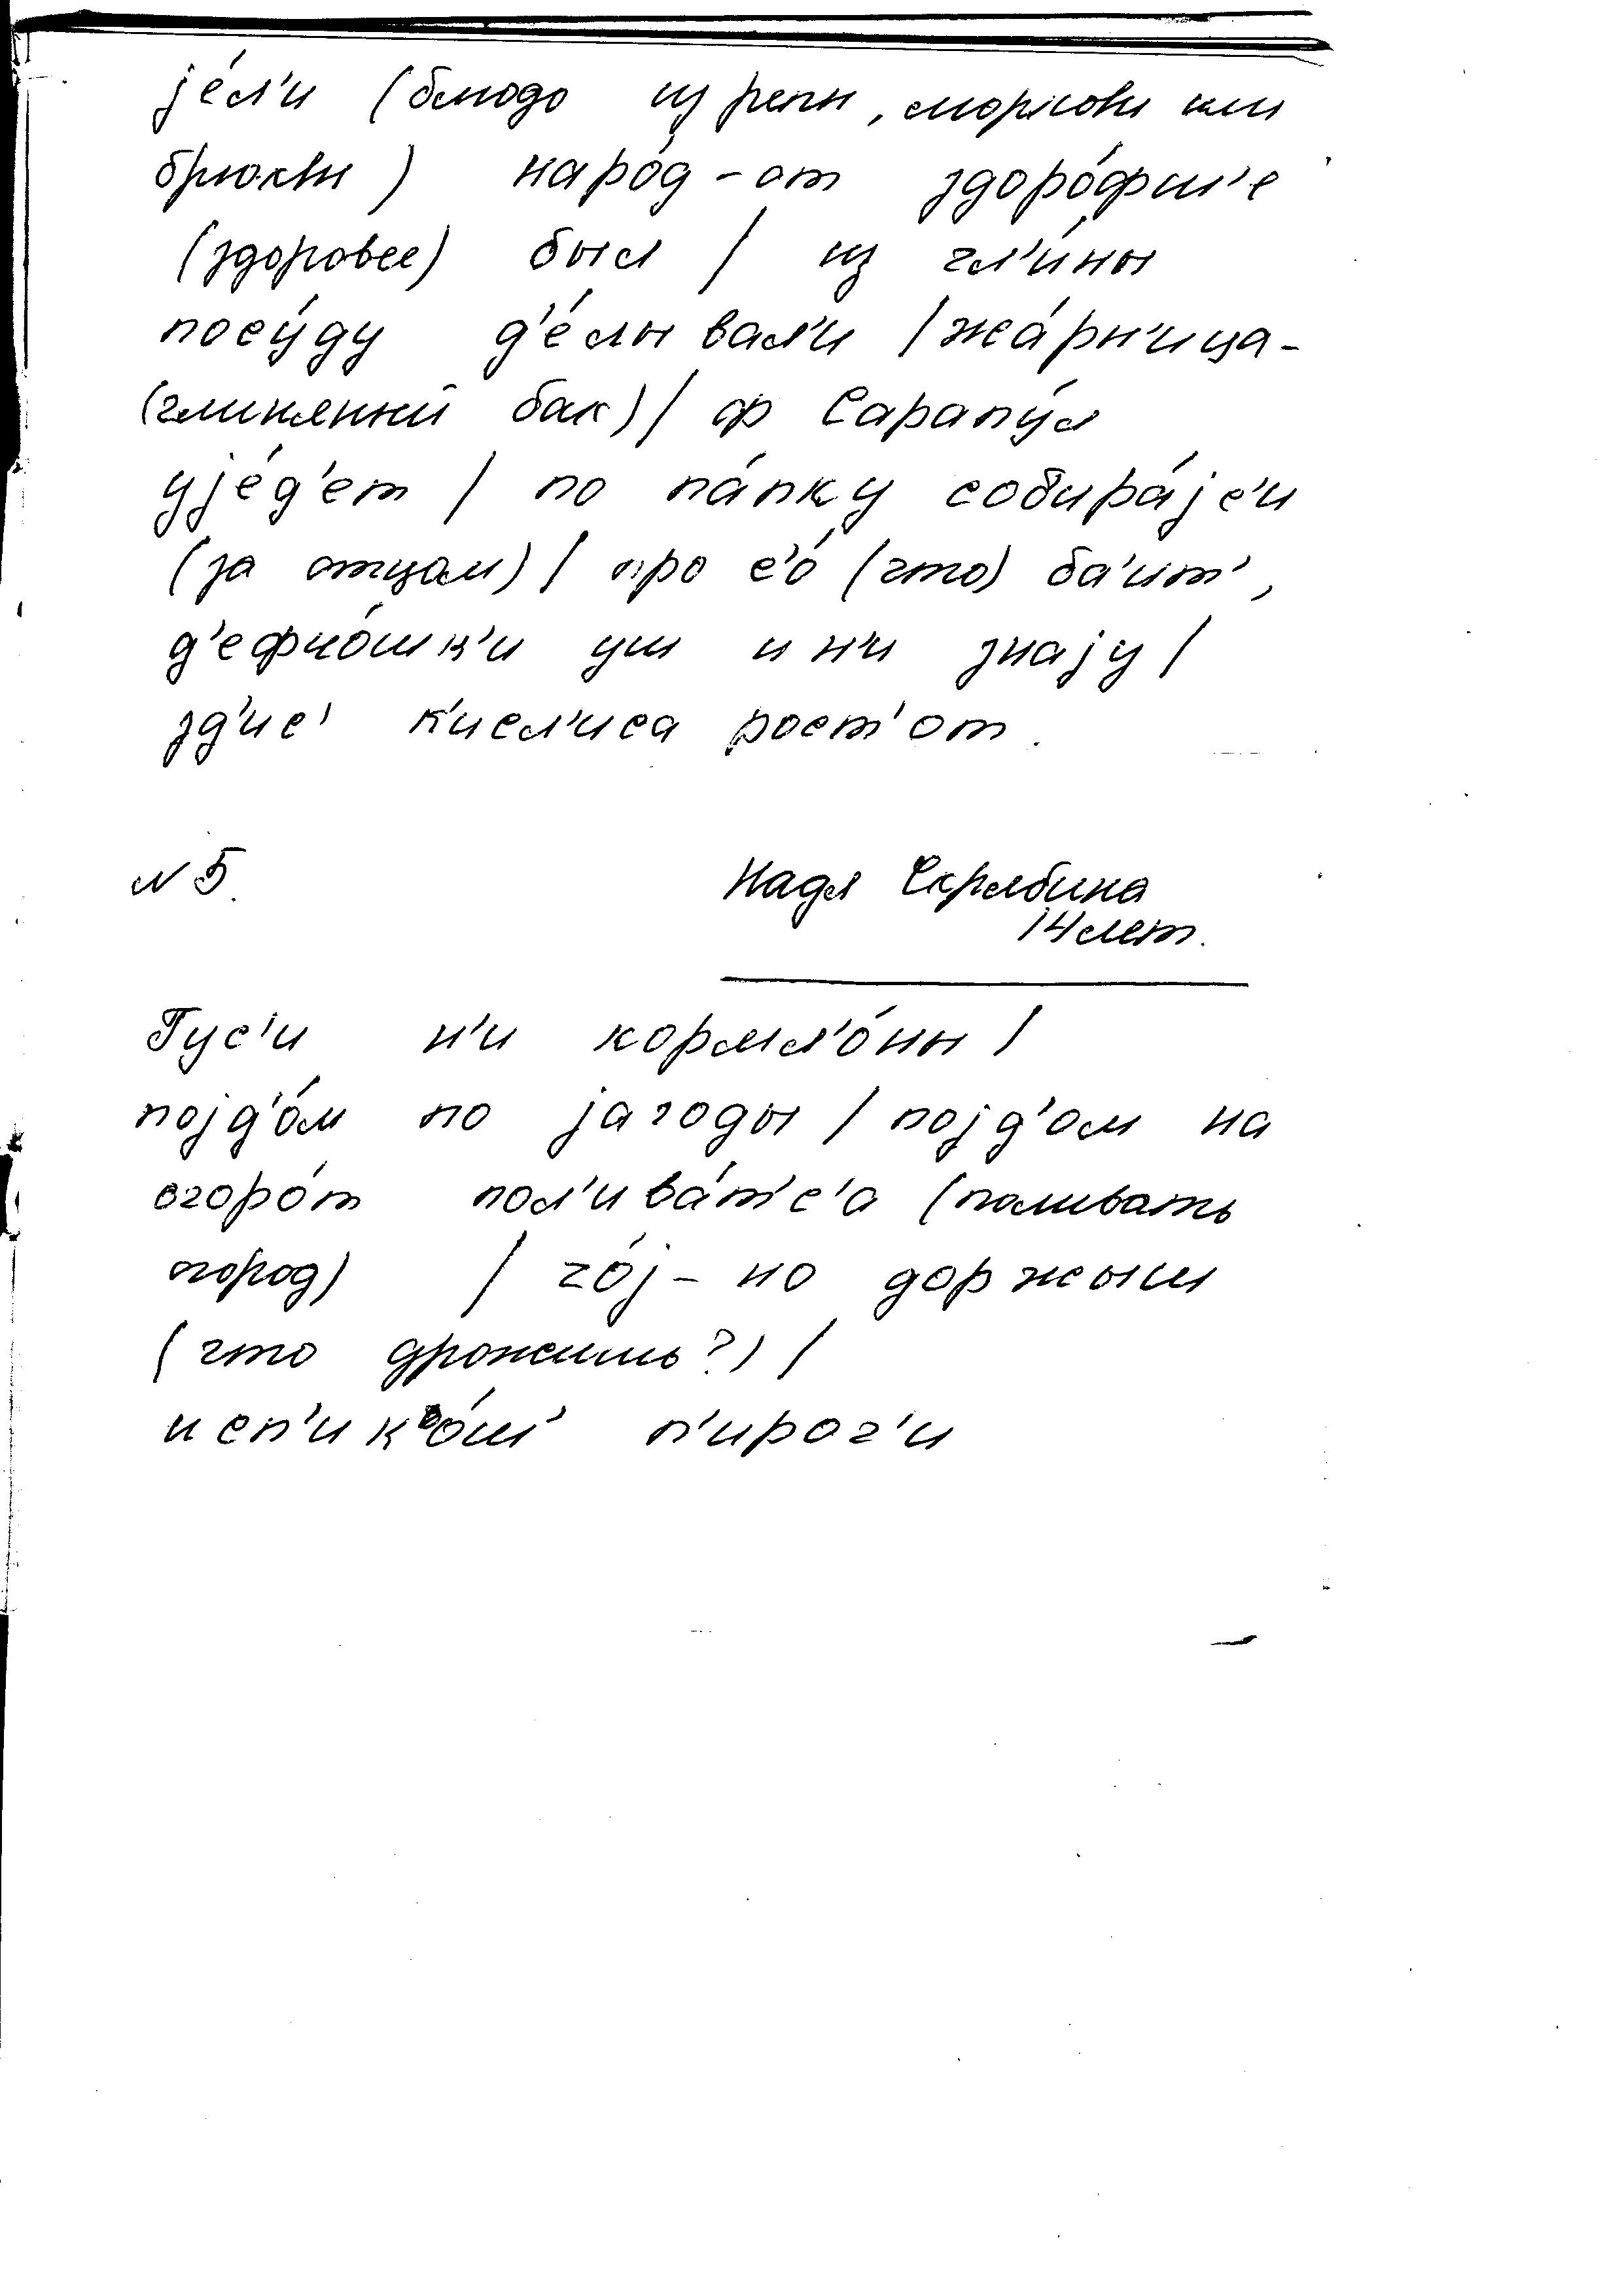 је́л'и (блюдо из репы, моркови или
брюквы) наро́д-от здоро́фш'е
(здоровее) был / из гл'и́ны
посу́ду д'е́лывал'и / жа́рн'ица-
(глиняный бак) / ф Сарапу́л
ује́д'ет / по па́пку собира́јс'и
(за отцом) / про с'о́ (что) ба'ит',
д'ефчо́шк'и уш и н'и знају /
зд'ис' к'исл'иса рост'от.
N 5.
Надя Скрябина
14 лет.
Гус'и н'и кормл'о́ны /
појд'о́м по јагоды / појд'ом на
огоро́т пол'ива́т'с'а (поливать
огород) / чо́ј-но доржыш
(что дрожишь?) /
исп'ик'о́ш' п'ирог'и